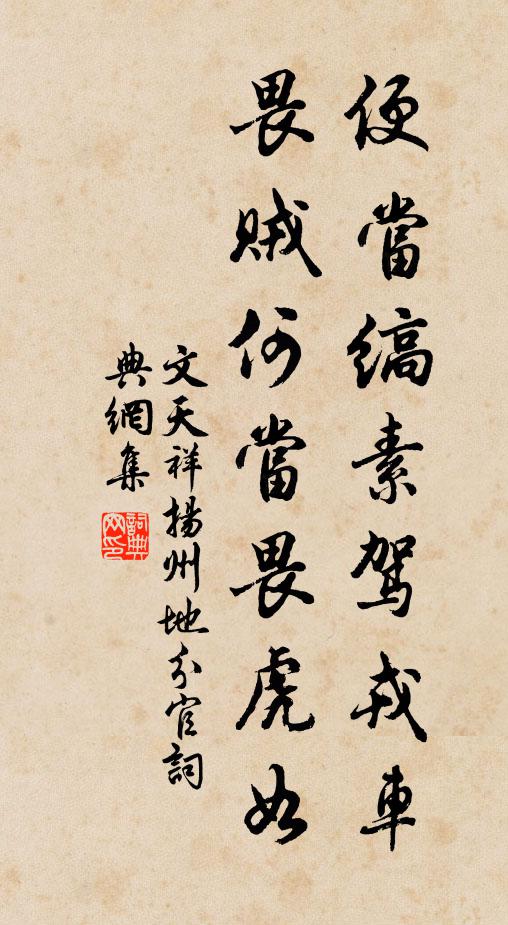 便當縞素駕戎車
畏賊何當畏虎如
文天祥揚州地分官詞
典網集
詞典網印